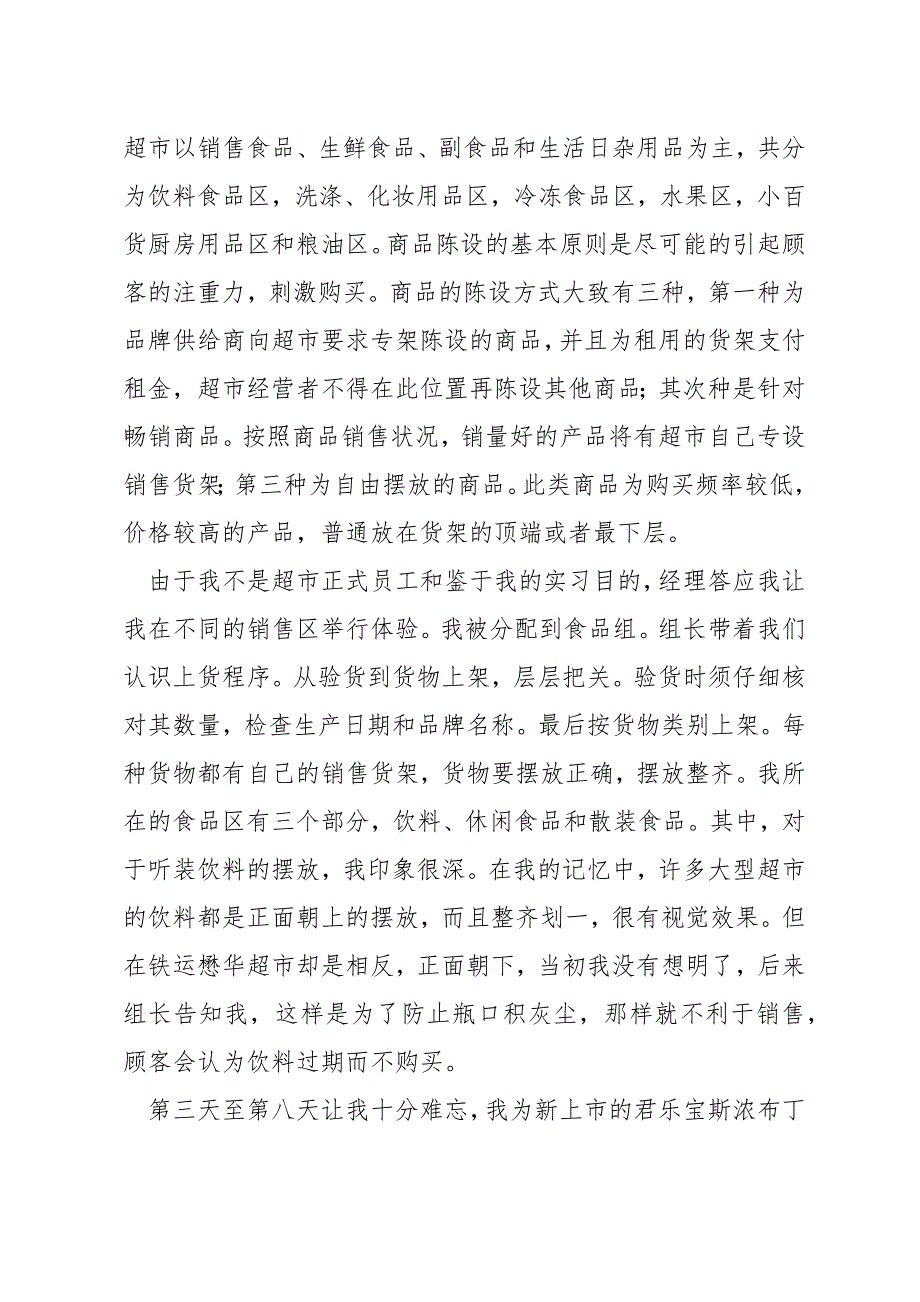 超市以销售食品、生鲜食品、副食品和生活日杂用品为主，共分
为饮料食品区，洗涤、化妆用品区，冷冻食品区，水果区，小百
货厨房用品区和粮油区。商品陈设的基本原则是尽可能的引起顾
客的注重力，刺激购买。商品的陈设方式大致有三种，第一种为
品牌供给商向超市要求专架陈设的商品，并且为租用的货架支付
租金，超市经营者不得在此位置再陈设其他商品；其次种是针对
畅销商品。按照商品销售状况，销量好的产品将有超市自己专设
销售货架；第三种为自由摆放的商品。此类商品为购买频率较低，
价格较高的产品，普通放在货架的顶端或者最下层。
由于我不是超市正式员工和鉴于我的实习目的，经理答应我让
我在不同的销售区举行体验。我被分配到食品组。组长带着我们
认识上货程序。从验货到货物上架，层层把关。验货时须仔细核
对其数量，检查生产日期和品牌名称。最后按货物类别上架。每
种货物都有自己的销售货架，货物要摆放正确，摆放整齐。我所
在的食品区有三个部分，饮料、休闲食品和散装食品。其中，对
于听装饮料的摆放，我印象很深。在我的记忆中，许多大型超市
的饮料都是正面朝上的摆放，而且整齐划一，很有视觉效果。但
在铁运懋华超市却是相反，正面朝下，当初我没有想明了，后来
组长告知我，这样是为了防止瓶口积灰尘，那样就不利于销售，
顾客会认为饮料过期而不购买。
第三天至第八天让我十分难忘，我为新上市的君乐宝斯浓布丁